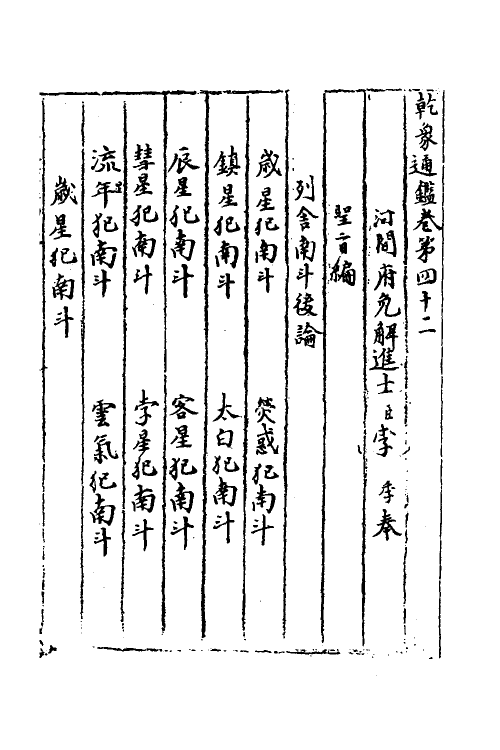 乾象通鑑卷第四十二
河間府免解進士臣李季奉
聖旨編
列舍南斗後論
歲星犯南斗 熒惑犯南斗
鎮星犯南斗 太白犯南斗
辰星犯南斗 客星犯南斗
彗星犯南斗 孛星犯南斗
流星犯南斗 雲氣犯南斗
歲星犯南斗